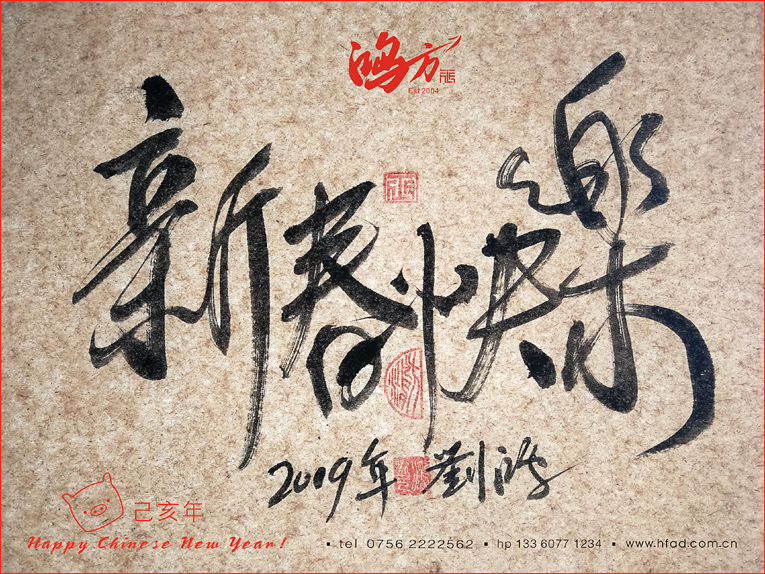 鸿方
Est 2004
新春快樂
2019年 劉鴻
己亥年
Happy Chinese New Year!
▪ tel 0756 2222562 ▪ hp 133 6077 1234 ▪ www.hfad.com.cn